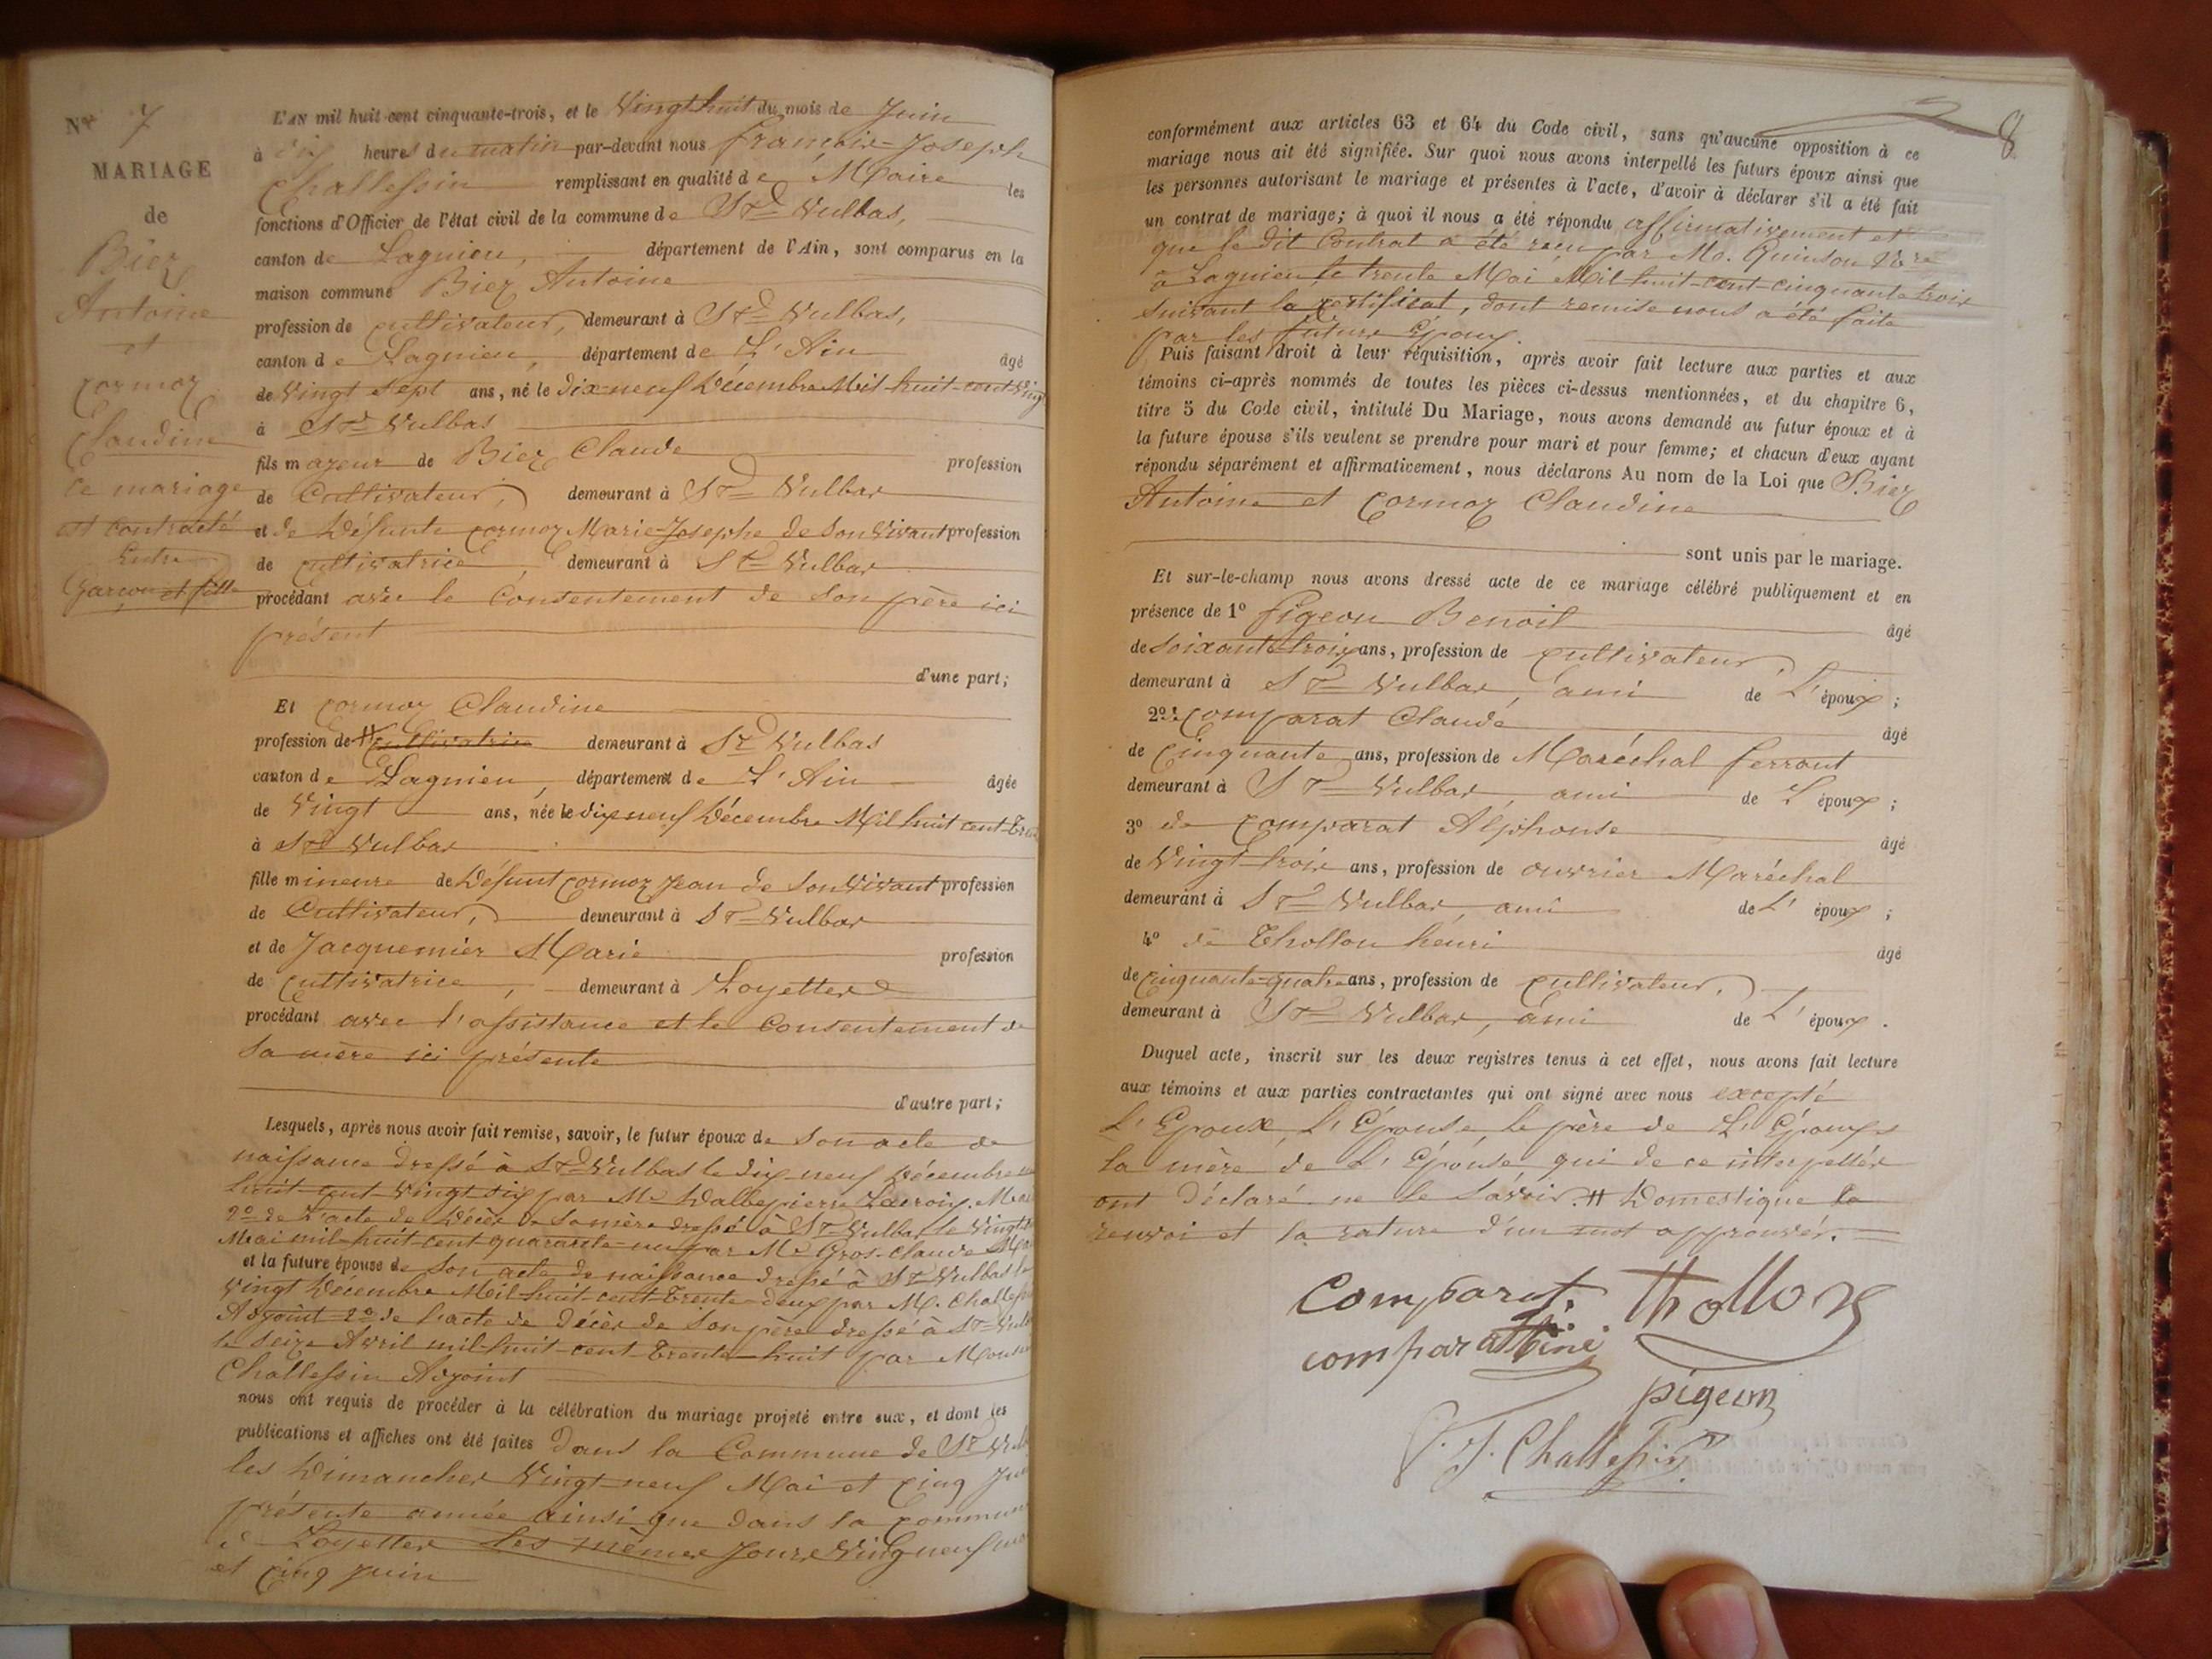 Nº 7
MARIAGE
de
Biez
Antoine
et
Cormoz
Claudine
Ce mariage
est contracté
Entre
Garçon et fille
L'AN mil huit cent cinquante-trois, et le Vingt huit du mois de Juin
à dix heures du matin par-devant nous François-Joseph
Challessin remplissant en qualité de Maire les
fonctions d'Officier de l'état civil de la commune de St Vulbas,
canton de Lagnieu, département de l'Ain, sont comparus en la
maison commune Biez Antoine
profession de cultivateur, demeurant à St Vulbas,
canton de Lagnieu, département de L'Ain âgé
de Vingt sept ans, né le dix-neuf Décembre Mil huit-cent-Vingt
à St Vulbas
fils mageur de Biez Claude profession
de Cultivateur, demeurant à St Vulbas
et de Défunte Cormoz Marie-Josephe de son Vivant profession
de cultivatrice, demeurant à St Vulbas
procédant avec le Consentement de son père ici
présent
d'une part;
Et Cormoz Claudine
profession de # Cultivatrice demeurant à St Vulbas
canton de Lagnieu, département de L'Ain âgée
de Vingt ans, née le dix neuf Décembre Mil huit cent-
à St Vulbas
fille mineure de Défunt Cormoz Jean de son Vivant profession
de Cultivateur, demeurant à St Vulbas
et de Jacquemier Marie profession
de cultivatrice, demeurant à Loyettes
procédant avec l'assistance et le Consentement de
sa mère ici présente
d'autre part;
Lesquels, après nous avoir fait remise, savoir, le futur époux de Son acte de
naissance dressé à St Vulbas le dix neuf Décembre
huit-cent Vingt six par Me Dallepierre Lacroix,
2º de L'acte de Décès de Samère dressé à St Vulbas le Vingt
Mai mil-huit-cent quarante-neuf par Me Gros-Claude
et la future épouse de Son acte de naissance dressé à St Vulbas le
Vingt Décembre Mil huit-cent-Trente-deux par M. Challessin
Adjoint 2º de l'acte de Décès de Son père dressé à St
le Seize Avril mil-huit-cent-Trente-huit par
Challessin Adjoint
nous ont requis de procéder à la célébration du mariage projeté entre eux, et dont les
publications et affiches ont été faites Dans la Commune de St
les Dimanches Vingt-neuf Mai et Cinq
présente année ainsi que dans la Commune
Loyettes les mêmes Jours Vingneuf
et Cinq Juin
8
conformément aux articles 63 et 64 du Code civil, sans qu'aucune opposition à ce
mariage nous ait été signifiée. Sur quoi nous avons interpellé les futurs époux ainsi que
les personnes autorisant le mariage et présentes à l'acte, d'avoir à déclarer s'il a été fait
un contrat de mariage; à quoi il nous a été répondu affirmativement et
que le dit Contrat a été reçu par Me. Quinson Nre
à Lagnieu le trente Mai Mil huit-cent-cinquante trois
suivant la certificat, dont remise nous a été faite
par les future Époux.
Puis faisant droit à leur réquisition, après avoir fait lecture aux parties et aux
témoins ci-après nommés de toutes les pièces ci-dessus mentionnées, et du chapitre 6,
titre 5 du Code civil, intitulé Du Mariage, nous avons demandé au futur époux et à
la future épouse s'ils veulent se prendre pour mari et pour femme; et chacun d'eux ayant
répondu séparément et affirmativement, nous déclarons Au nom de la Loi que Biez
Antoine et Cormoz Claudine
sont unis par le mariage.
Et sur-le-champ nous avons dressé acte de ce mariage célébré publiquement et en
présence de 1º Pigeon Benoit âgé
de soixante trois ans, profession de cultivateur,
demeurant à St Vulbas, ami de L'époux;
2º Comparat Claude âgé
de Cinquante ans, profession de Maréchal ferrant
demeurant à St Vulbas, ami de L'époux;
3º de Comparat Alphonse âgé
de Vingt-trois ans, profession de ouvrier Maréchal
demeurant à St Vulbas, ami de L'époux;
4º de Thollon henri âgé
de Cinquante-quatre ans, profession de cultivateur,
demeurant à St Vulbas, ami de L'époux.
Duquel acte, inscrit sur les deux registres tenus à cet effet, nous avons fait lecture
aux témoins et aux parties contractantes qui ont signé avec nous excepté
L'Époux, L'Épouse, le père de L'Époux,
la mère de L'Épouse, qui de ce interpellés
ont Déclaré ne le Savoir. # Domestique le
renvoi et la rature d'un mot approuvés.
Comparat Thollon
comparat
pigeon
F. J. Challessin